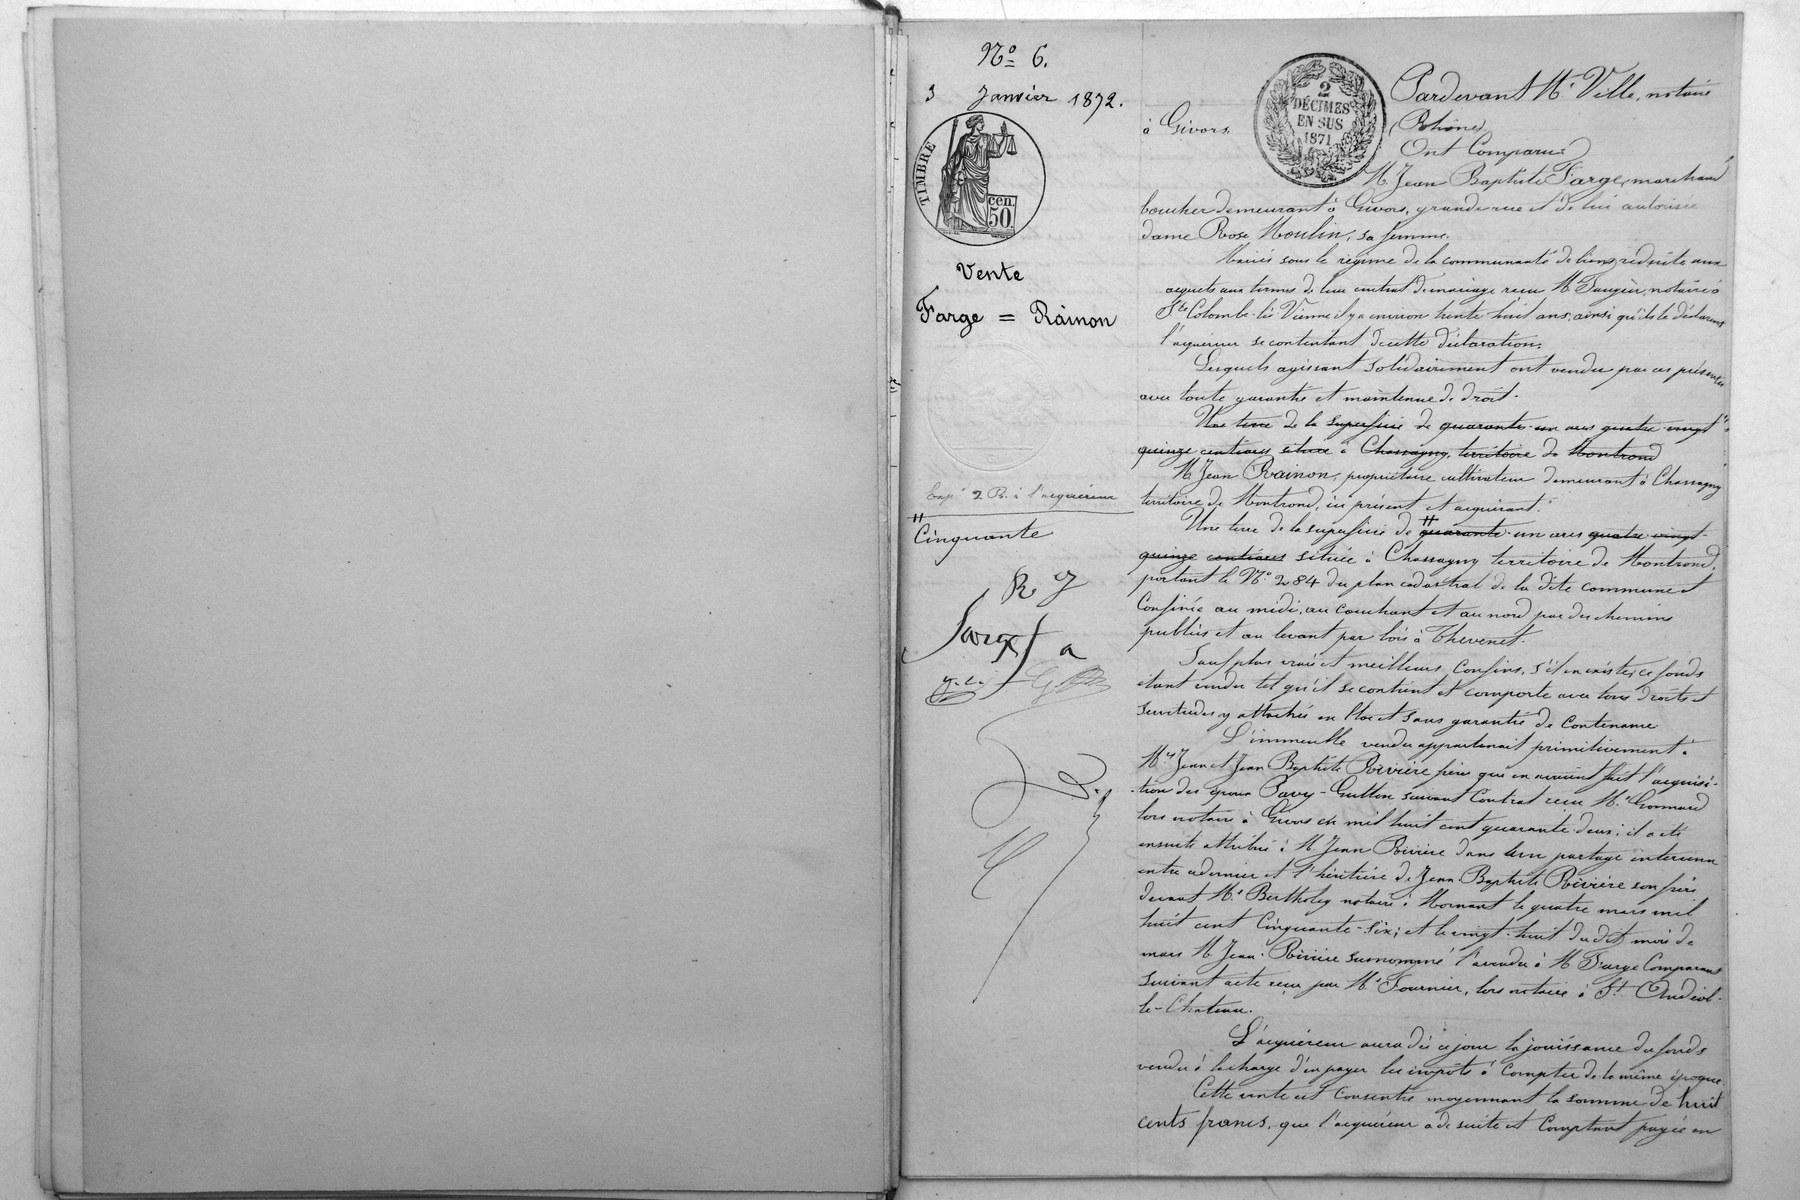 No 6.
3 Janvier 1872.
TIMBRE
50 cen.
Vente
Farge = Rainon
Exp.on 2 R. à l'acquéreur
# Cinquante
Farge
2
DÉCIMES
EN SUS
1871
Pardevant Me Ville, notaire
à Givors (Rhône)
Ont Comparu:
M. Jean Baptiste Farge, marchand
boucher demeurant à Givors, grande rue et de lui autorisée
dame Rose Moulin, sa femme.
Mariés sous le régime de la communauté de biens réduite aux
acquets aux termes de leur contrat de mariage reçu Me notaire à
Ste Colombe-lès-Vienne il y a environ trente-huit ans, ainsi qu'ils le déclarent
l'acquéreur se contentant de cette déclaration.
Lesquels agissant solidairement ont vendu par ces présentes
avec toute garantie et maintenue de droit.
Une terre de la superficie de quarante-un ares quatre vingt
quinze centiares située à Chassagny, territoire de Montrond
M. Jean Rainon, propriétaire cultivateur demeurant à Chassagny
territoire de Montrond, ici présent et acquérant.
Une terre de la superficie de # quarante-un ares quatre vingt
quinze centiares située à Chassagny territoire de Montrond,
portant le No 284 du plan cadastral de la dite commune et
Confinée au midi, au couchant et au nord par des chemins
publics et au levant par bois à Thevenet.
Sauf plus vrais et meilleurs Confins, s'il en existe, ce fonds
étant vendu tel qu'il se contient et comporte avec tous droits et
servitudes y attachés en bloc et sans garantie de Contenance
L'immeuble vendu appartenait primitivement à
Mrs Jean et Jean Baptiste Rivière frères qui en avaient fait l'acquisi-
-tion des époux Pavy-Guillon suivant Contrat reçu Me
lors notaire à Givors en mil huit cent quarante-deux; il a été
ensuite attribué à M. Jean Rivière dans leur partage intervenu
entre ce dernier et l'héritière de Jean Baptiste Rivière son frère
devant Me Bertholey notaire à Mornant le quatre mars mil
huit cent Cinquante-Six; et le vingt-huit du dit mois de
mars M. Jean Rivière susnommé l'a vendu à M. Farge Comparant
suivant acte reçu par Me Fournier, lors notaire à St Andéol-
le-Château.
L'acquéreur aura dès ce jour la jouissance du fonds
vendu à la charge d'en payer les impôts à Compter de la même époque.
Cette vente est Consentie moyennant la somme de huit
cents francs, que l'acquéreur a de suite et Comptant payée en